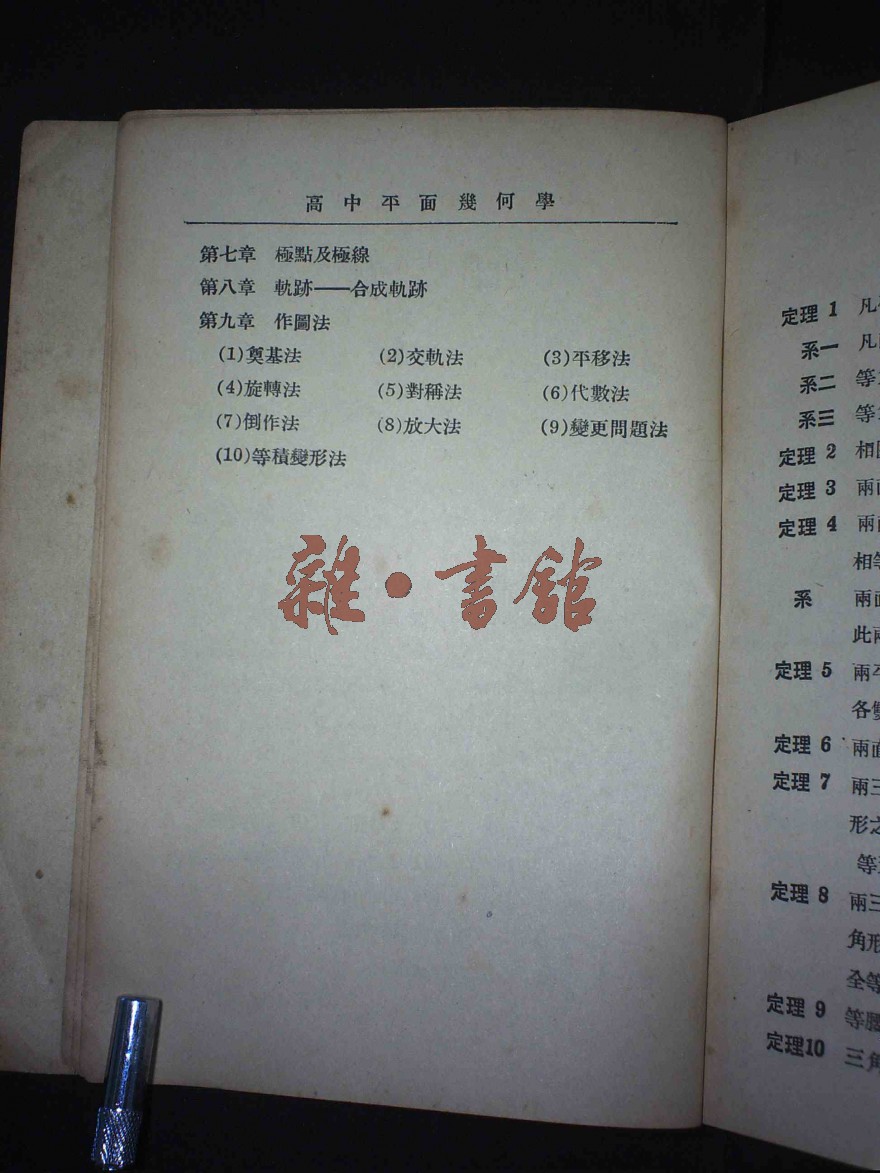 高中平面幾何學
第七章 極點及極線
第八章 軌跡——合成軌跡
第九章 作圖法
(1)奠基法 (2)交軌法 (3)平移法
(4)旋轉法 (5)對稱法 (6)代數法
(7)倒作法 (8)放大法 (9)變更問題法
(10)等積變形法
雜·書館
定理 1 凡
系一 凡
系二 等
系三 等
定理 2 相
定理 3 兩
定理 4 兩
相等
系 兩面
此兩
定理 5 兩平
各雙
定理 6 兩面
定理 7 兩三
形之
等
定理 8 兩三
角形
全等
定理 9 等腰
定理10 三角